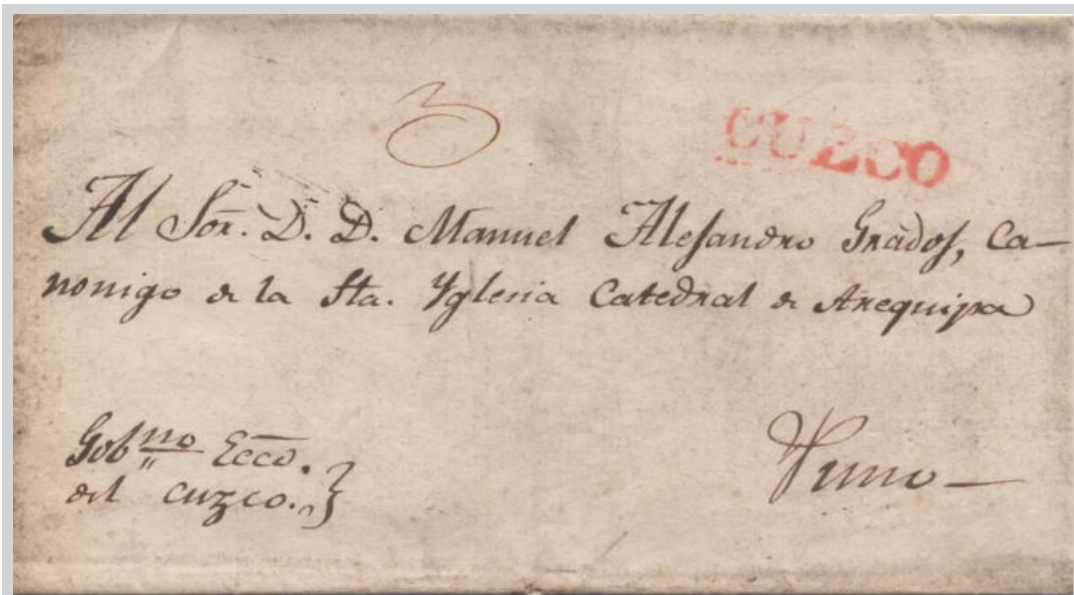 3
CUZCO
Al Sor. D. D. Manuel Alejandro Grados, Ca-
nonigo de la Sta. Yglesia Catedral de Arequipa
Gobno Ecco.
del Cuzco.
Puno-